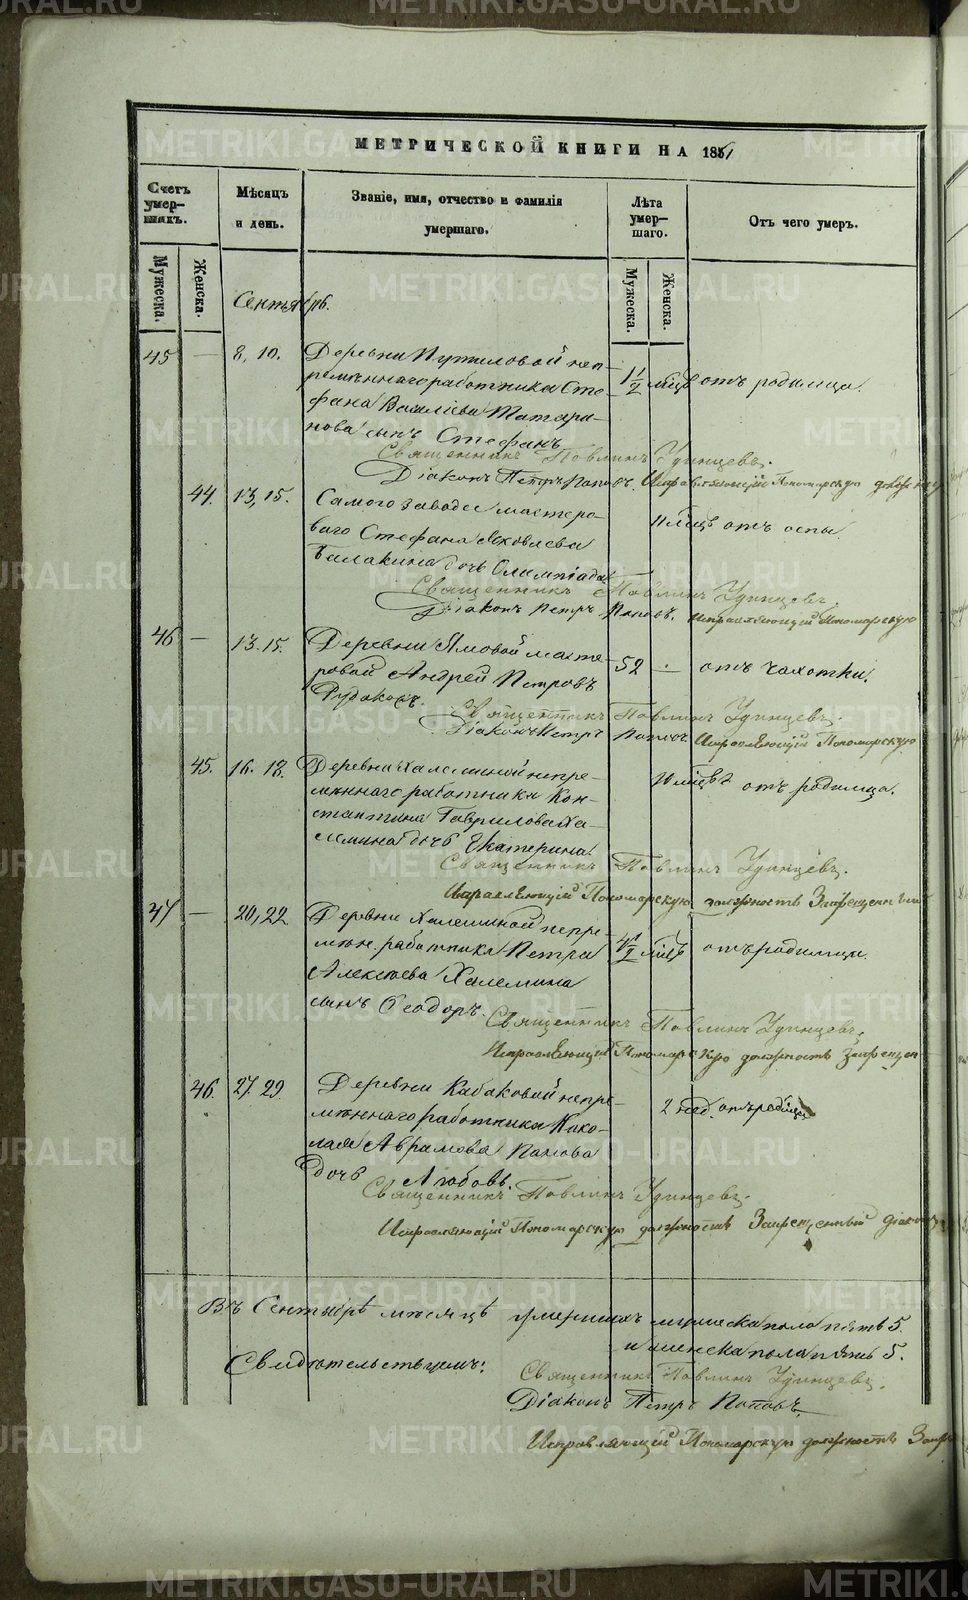 МЕТРИЧЕСКОЙ КНИГИ НА 1851
Счетъ умершихъ.
Мѣсяцъ и день.
Званіе, имя, отчество и фамилія умершаго.
Лѣта умершаго.
Отъ чего умеръ.
Мужеска.
Женска.
Мужеска.
Женска.
Сентябрь.
45 — 8, 10. Деревни Путиловой неп-
ремѣннаго работника Сте-
фана Василіева Татари-
нова сынъ Стефанъ
1 1/2 мѣсц отъ родимца.
Священникъ Павлинъ Удинцевъ.
Діаконъ Петръ Поповъ. Исправляющій Пономарскую
44. 13, 15. Самого завода мастеро-
ваго Стефана Яковлева
Балакина дочь Олимпіада
11 мѣсц отъ оспы
Священникъ Павлинъ Удинцевъ.
Діаконъ Петръ Поповъ. Исправляющій Пономарскую
46 — 13. 15. Деревни Ямовой масте-
ровой Андрей Петровъ
52 - отъ чахотки.
Священникъ Павлинъ Удинцевъ.
Діаконъ Петръ Поповъ Исправляющій Пономарскую
45. 16. 18. Деревни Халеминой непре-
мѣннаго работника Кон-
стантина Гаврилова Ха-
лемина дочь Екатерина.
мѣсцв отъ родимца.
Священникъ Павлинъ Удинцевъ.
Исправляющій Пономарскую должность Запрещенный
47 — 20, 22 Деревни Халеминой непре-
мѣн. работника Петра
Алексѣева Халемина
сынъ Ѳеодоръ.
1/2 мѣсц отъ родимца.
Священникъ Павлинъ Удинцевъ.
Исправляющій Пономарскую должность Запрещен
46. 27. 29. Деревни Кабаковой непре-
мѣннаго работника Нико-
лая Аврамова Попова
дочь Любовь.
2 нед. отъ родимца
Священникъ Павлинъ Удинцевъ.
Исправляющій Пономарскую должность Запрещенный діаконъ
Въ Сентябрѣ мѣсяцѣ умершихъ мужеска пола пять 5.
и женска пола пять 5.
Свидѣтельствуемъ:
Священникъ Павлинъ Удинцевъ.
Діаконъ Петръ Поповъ.
Исправляющій Пономарскую должность Запр
METRIKI.GASO-URAL.RU